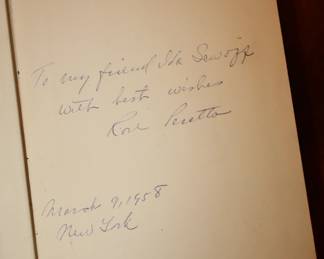 To my friend Ida
with best wishes
Rose Pesotta
March 9, 1958
New York